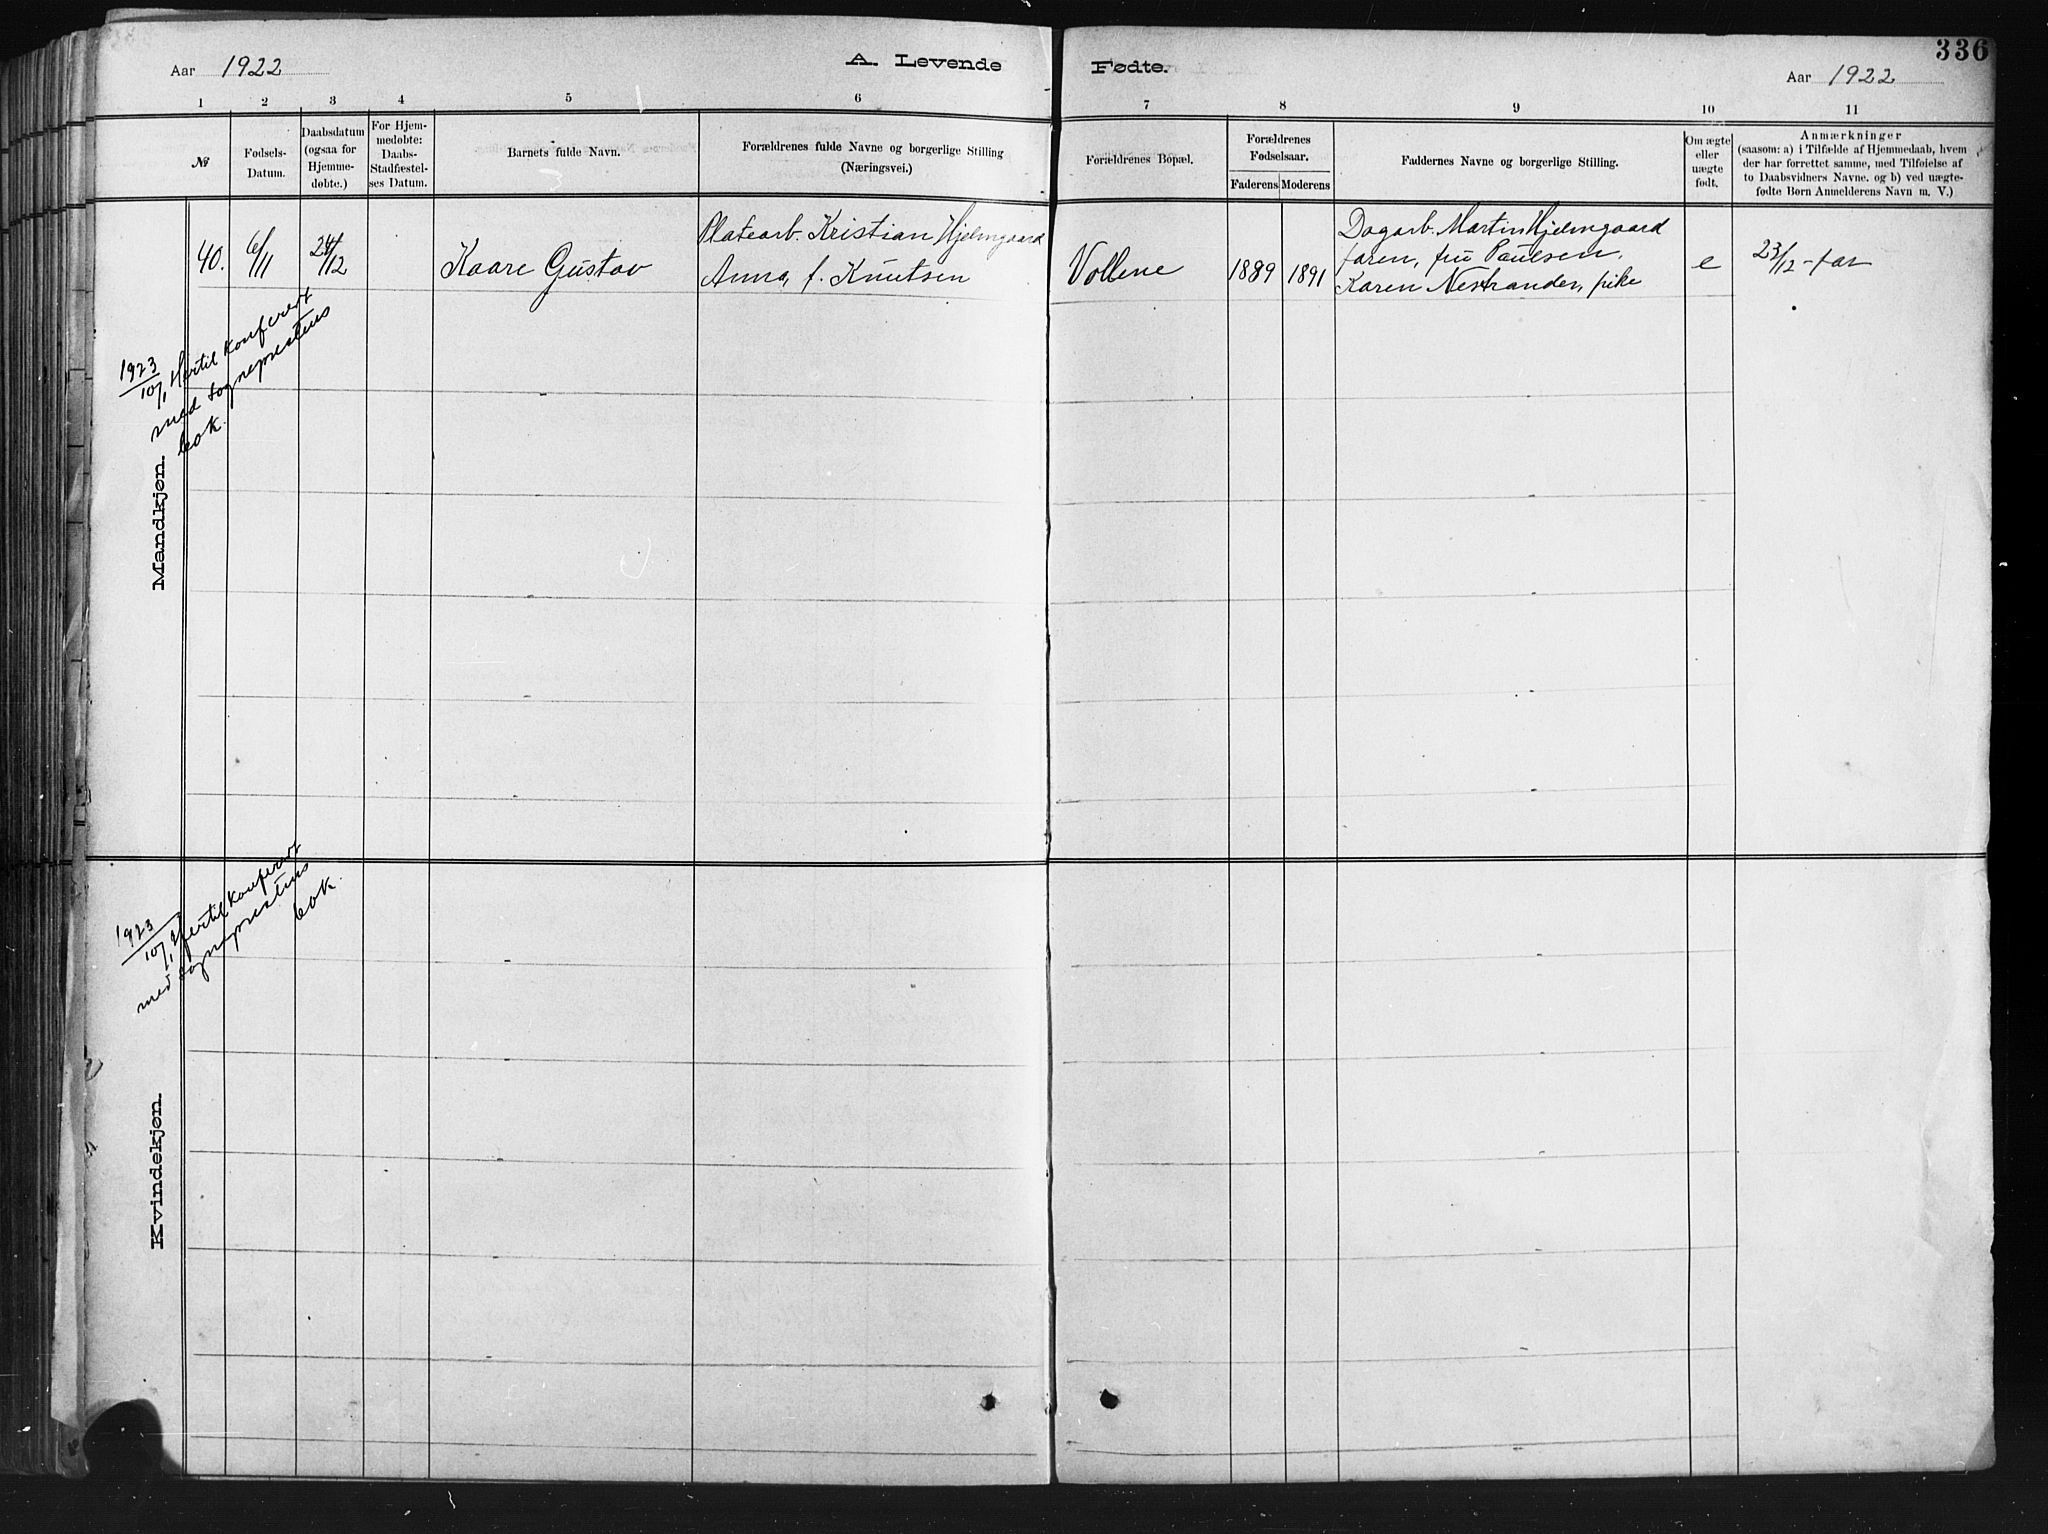 336
Aar 1922
A. Levende Fødte.
Aar 1922
1 2 3 4 5 6 7 8 9 10 11
№
Fødsels-
Datum.
Daabsdatum
(ogsaa for
Hjemme-
døbte.)
For Hjem-
medøbte:
Daabs-
Stadfæstel-
ses Datum.
Barnets fulde Navn.
Forældrenes fulde Navne og borgerlige Stilling
(Næringsvei.)
Forældrenes Bopæl.
Forældrenes
Fødselsaar.
Faderens Moderens
Faddernes Navne og borgerlige Stilling.
Om ægte
eller
uægte
født.
Anmærkninger
(saasom: a) i Tilfælde af Hjemmedaab, hvem
der har forrettet samme, med Tilføielse af
to Daabsvidners Navne. og b) ved uægte-
fødte Børn Anmelderens Navn m. V.)
40. 6/11 24/12 Kaare Gustav
Platearb. Kristian Hjelmgaard
Anna, f. Knutsen
Vollene
1889 1891
Dagarb. Martin Hjelmgaard
faren, fru Paulsen,
Karen Nestrander, pike
e
23/12 - far
1923
10/1 Hertil konferert
med sogneprestens
bok.
Mandkjøn.
1923
10/1 Hertil konferert
med sogneprestens
bok.
Kvindekjøn.